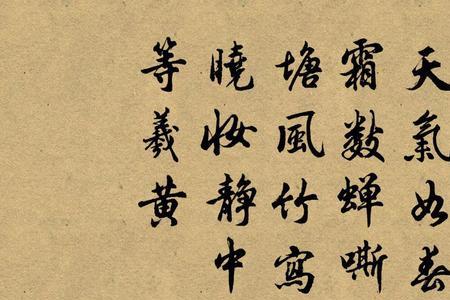 天氣如春
霜數蝉嘶
塘風竹寫
曉妝靜中
等羲黄